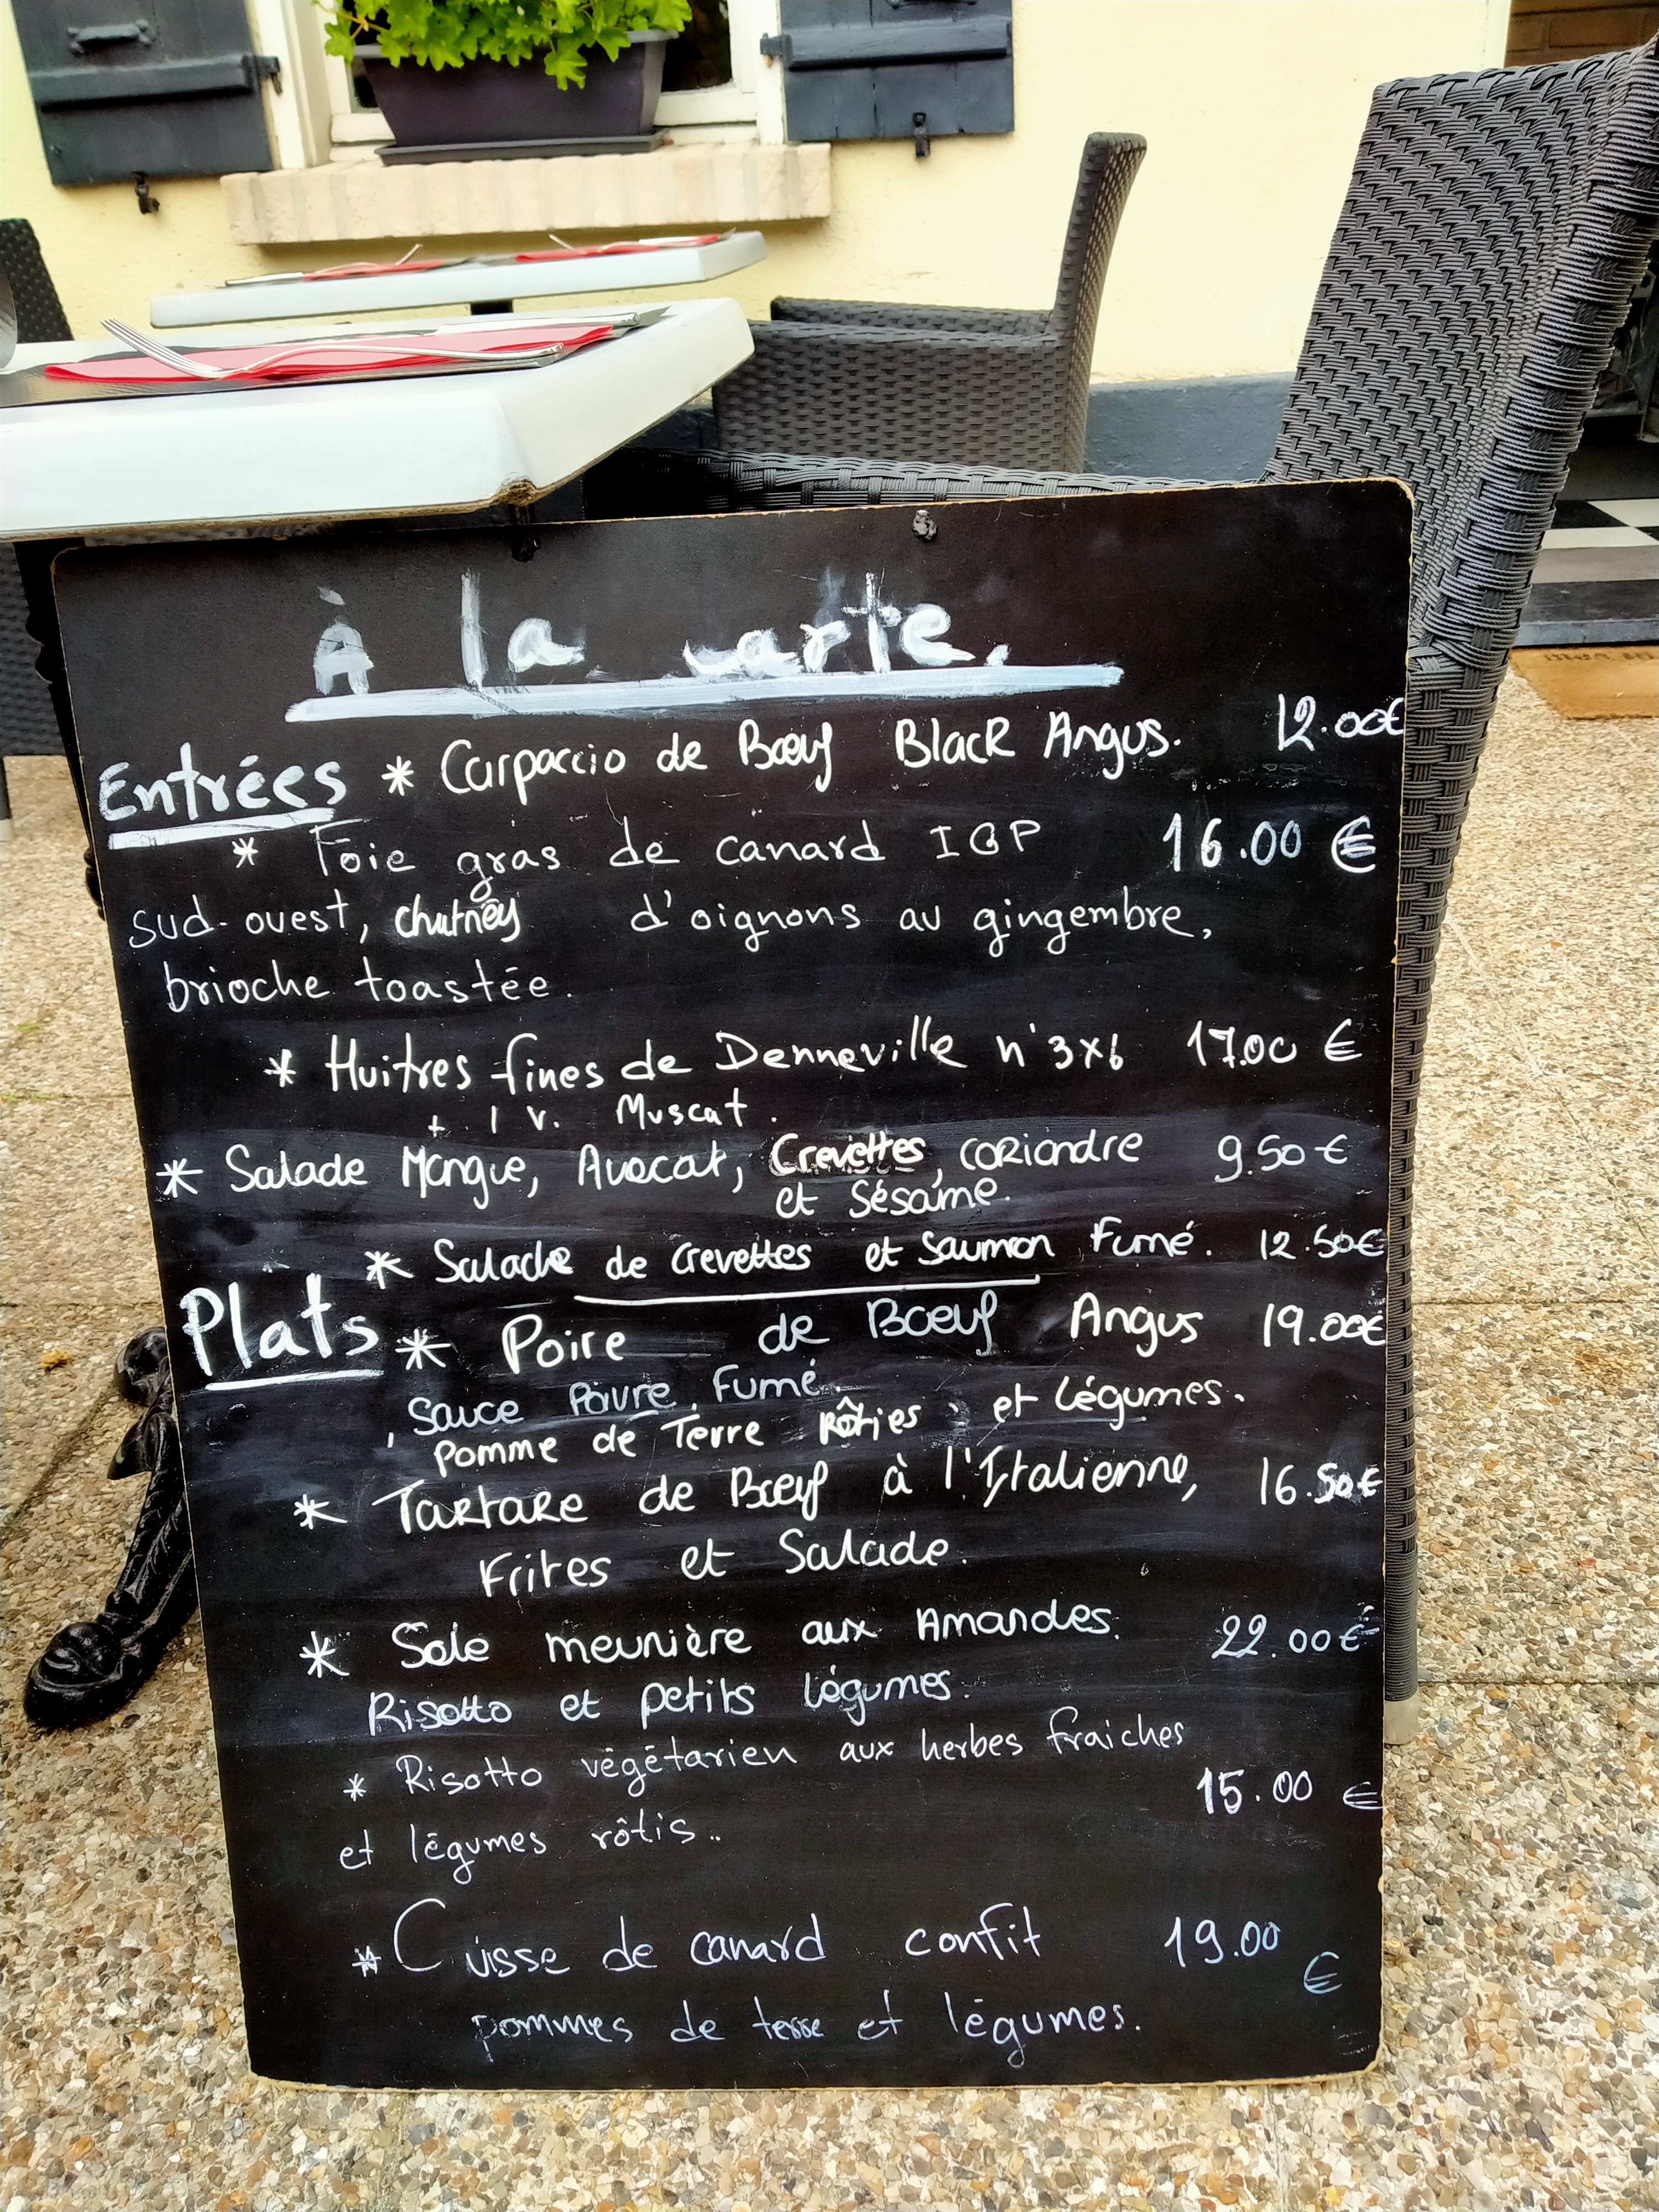 À la carte.
Entrées * Carpaccio de Bœuf Black Angus. 12.00€
* Foie gras de canard IGP 16.00 €
sud-ouest, chutney d'oignons au gingembre,
brioche toastée.
* Huitres fines de Denneville n°3x6 17.00 €
+ 1 v. Muscat.
* Salade Mangue, Avocat, Crevettes, coriandre 9.50€
et Sésame.
* Salade de crevettes et saumon Fumé. 12.50€
Plats * Poire de Bœuf Angus 19.00€
, Sauce Poivre Fumé.
pomme de Terre Rôties et légumes.
* Tartare de Bœuf à l'Italienne, 16.50€
Frites et Salade.
* Sole meunière aux Amandes. 22.00€
Risotto et petits légumes.
* Risotto végétarien aux herbes fraiches
15.00 €
et légumes rôtis..
* Cuisse de canard confit 19.00
€
pommes de terre et légumes.